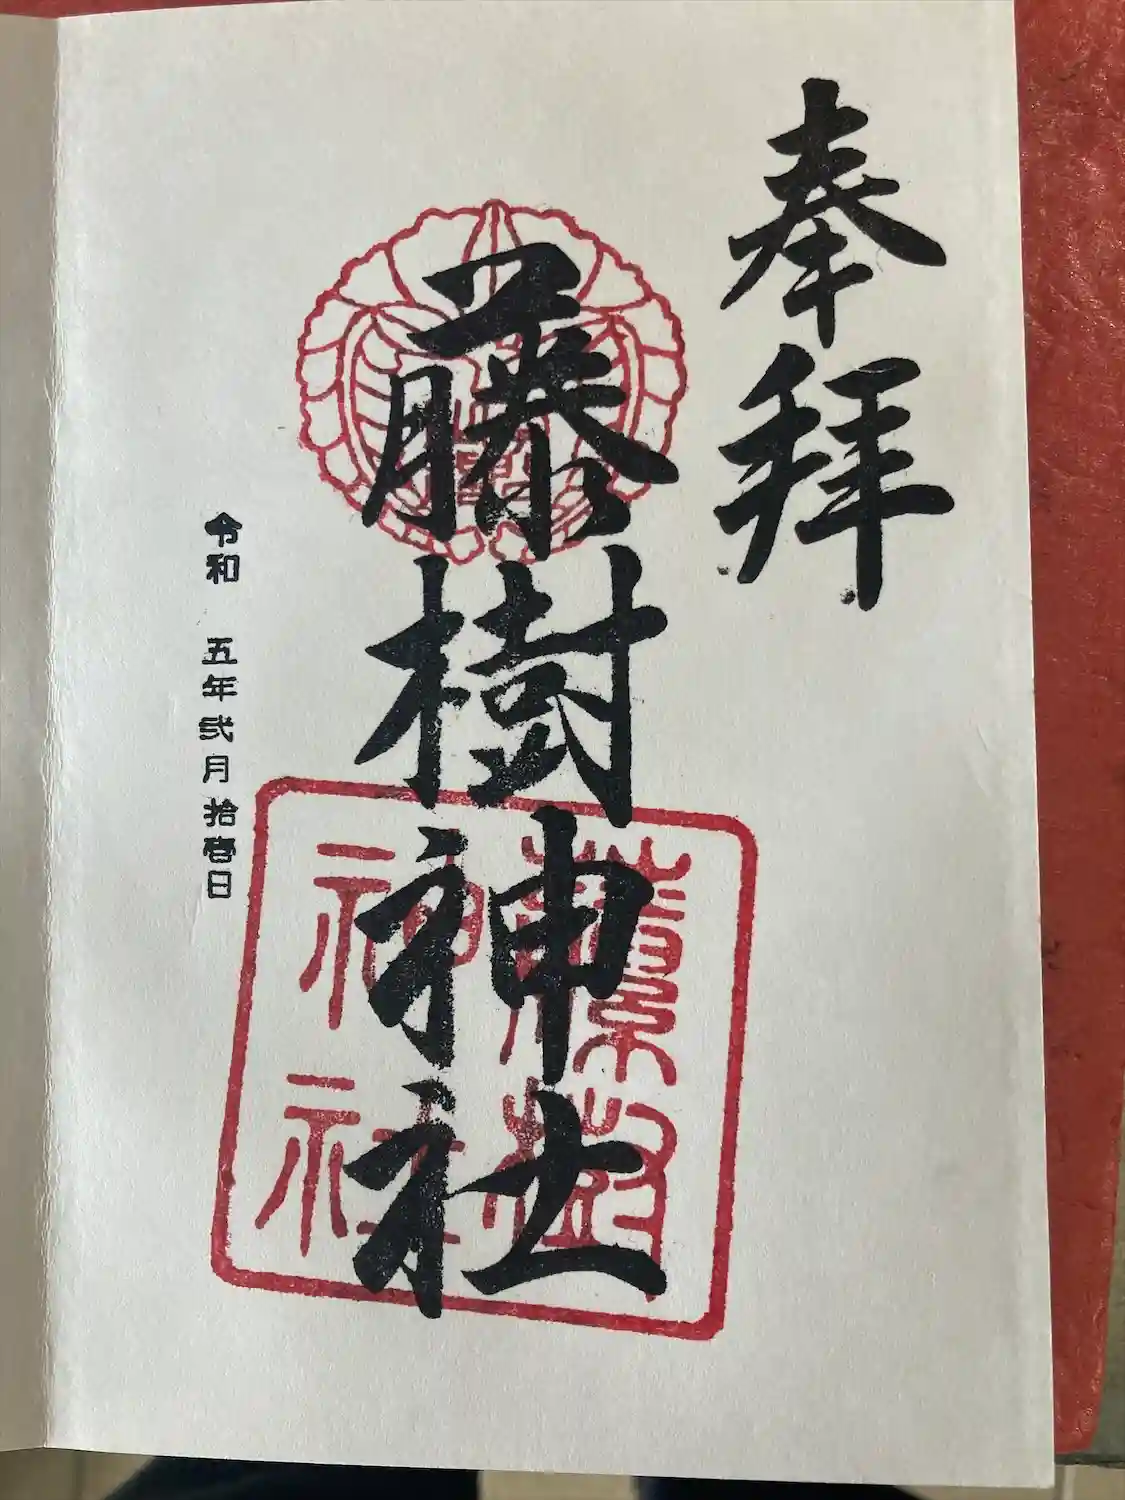 奉拝
藤樹神社
藤樹神社
令和 五年弐月拾壱日